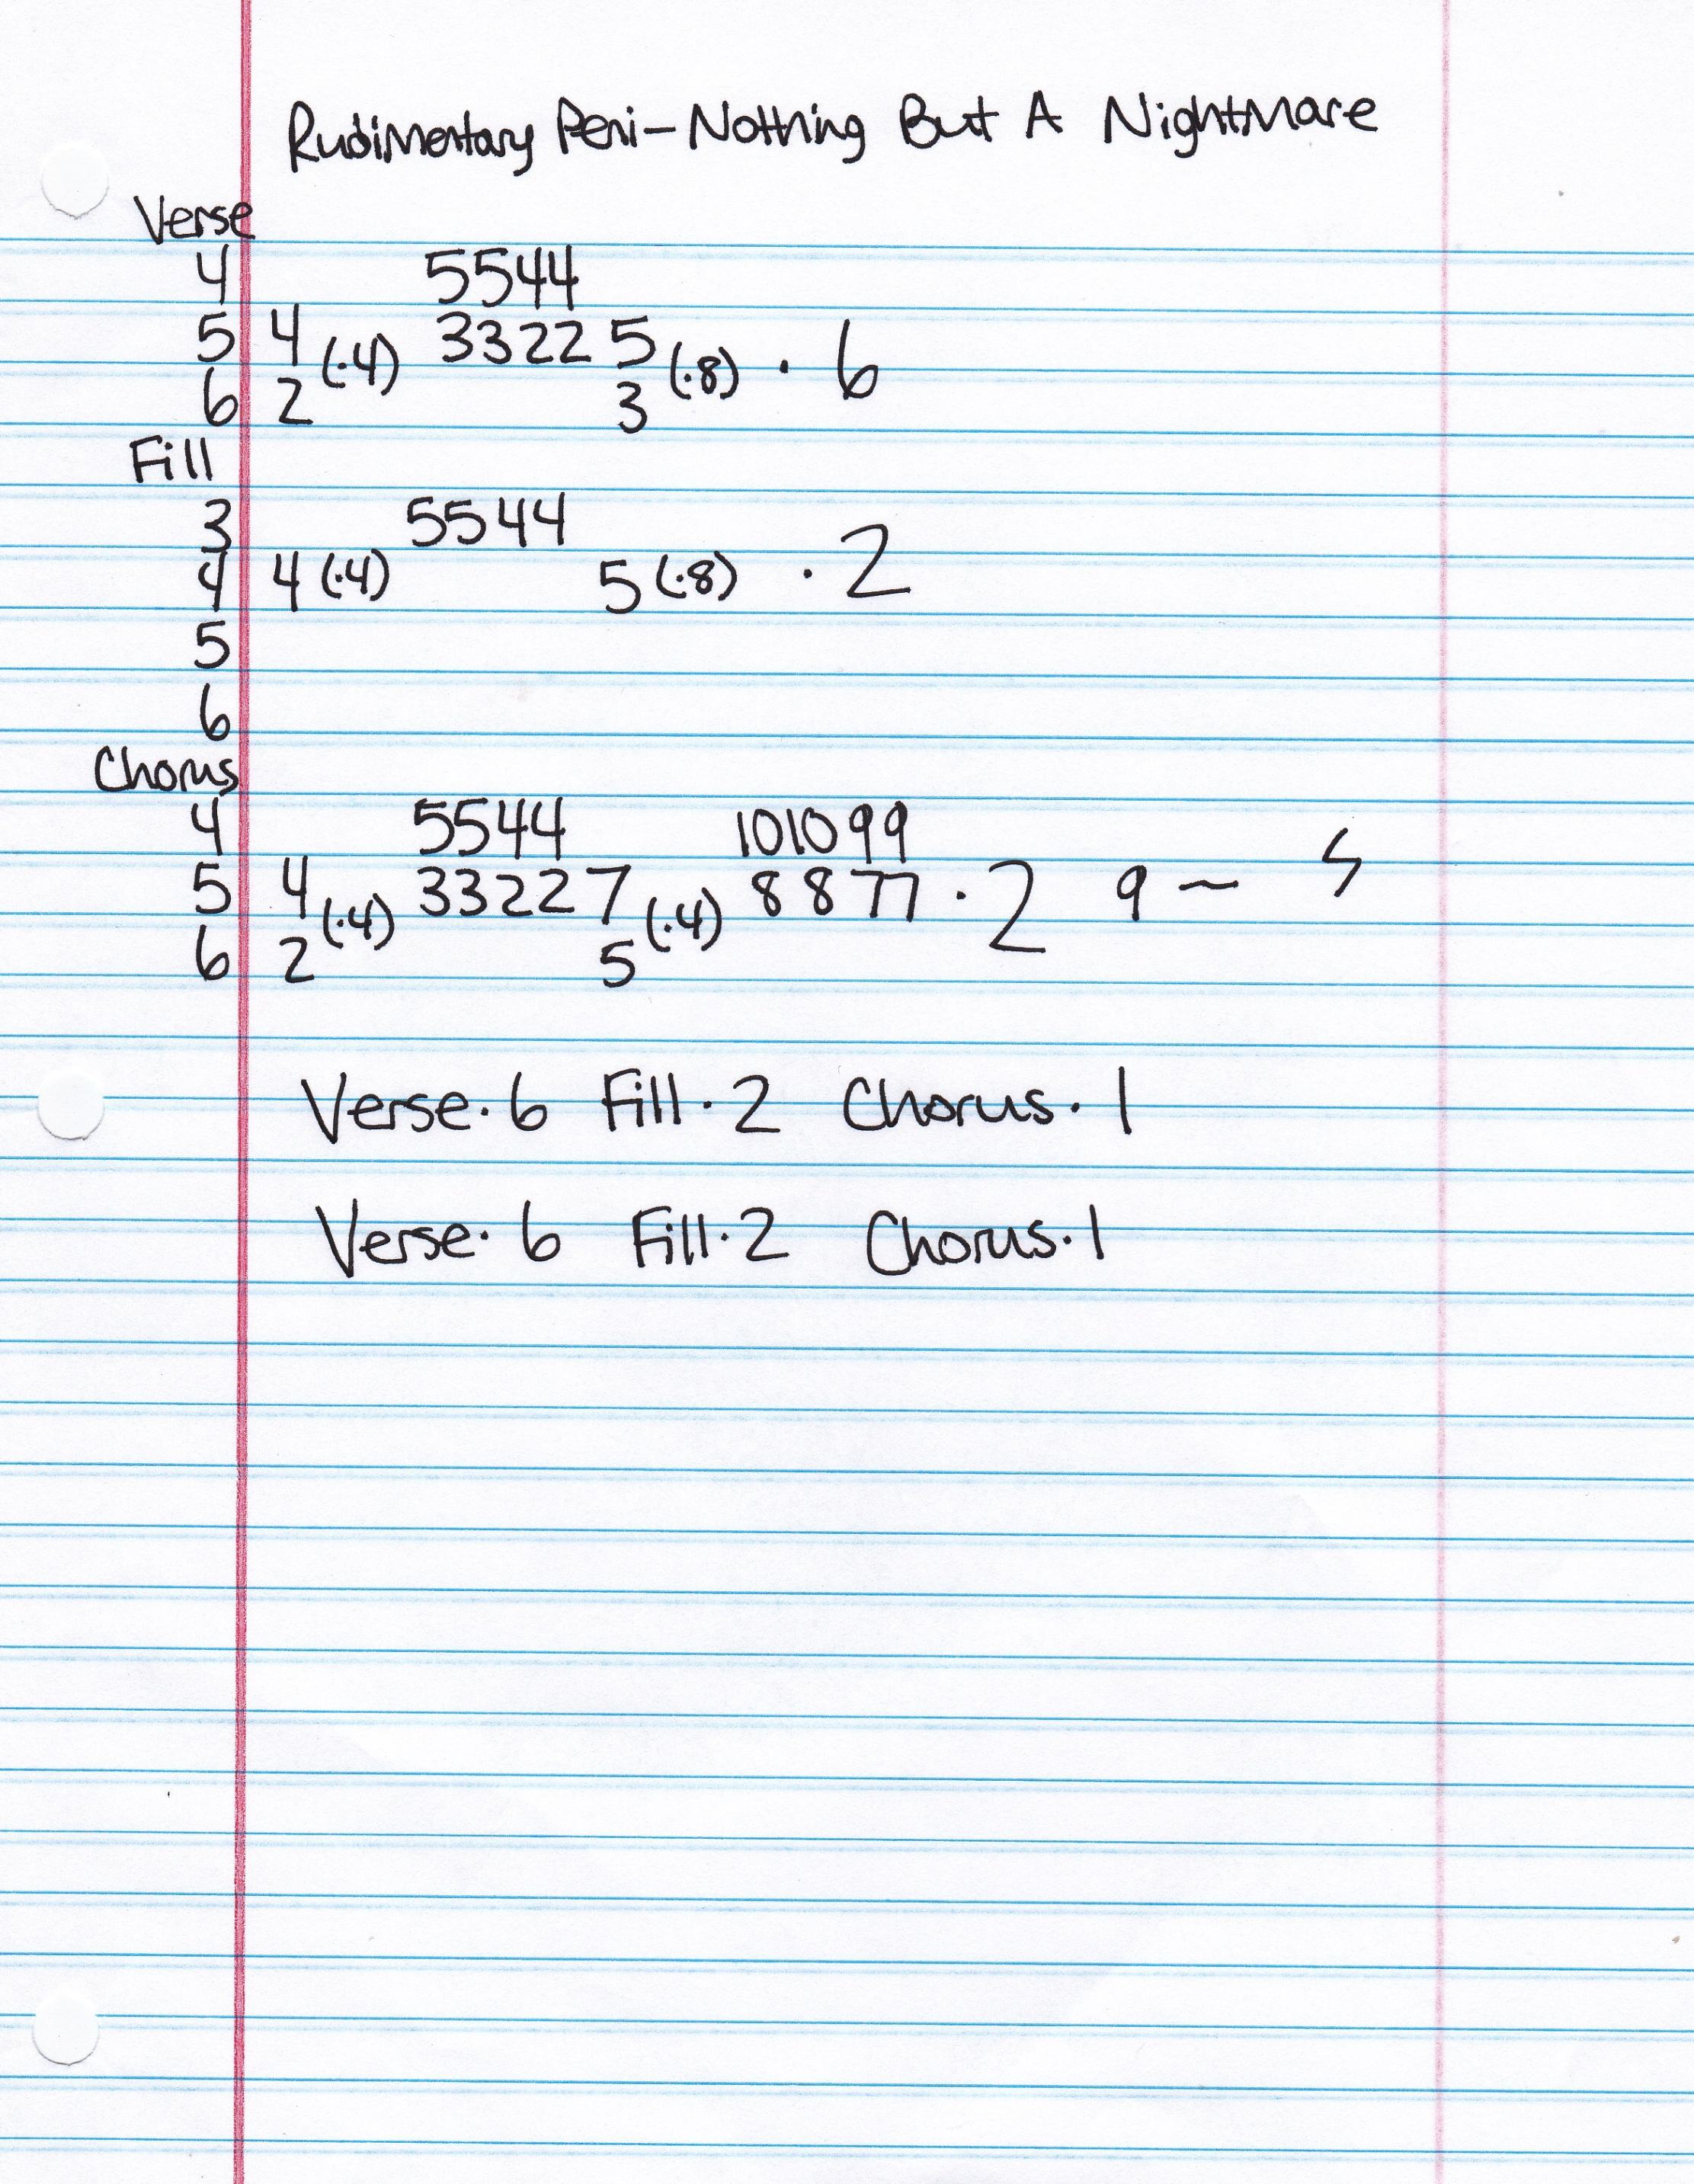 Rudimentary Peni - Nothing But A Nightmare
Verse
4 5544
5 4 (·4) 3322 5 (·8) · 6
6 2 3
Fill
3 5544
4 4 (·4) 5 (·8) · 2
5
6
Chorus
4 5544 10 10 9 9
5 4 (·4) 3322 7 (·4) 8 8 7 7 · 2 9 ~
6 2 5
Verse · 6 Fill · 2 Chorus · 1
Verse · 6 Fill · 2 Chorus · 1